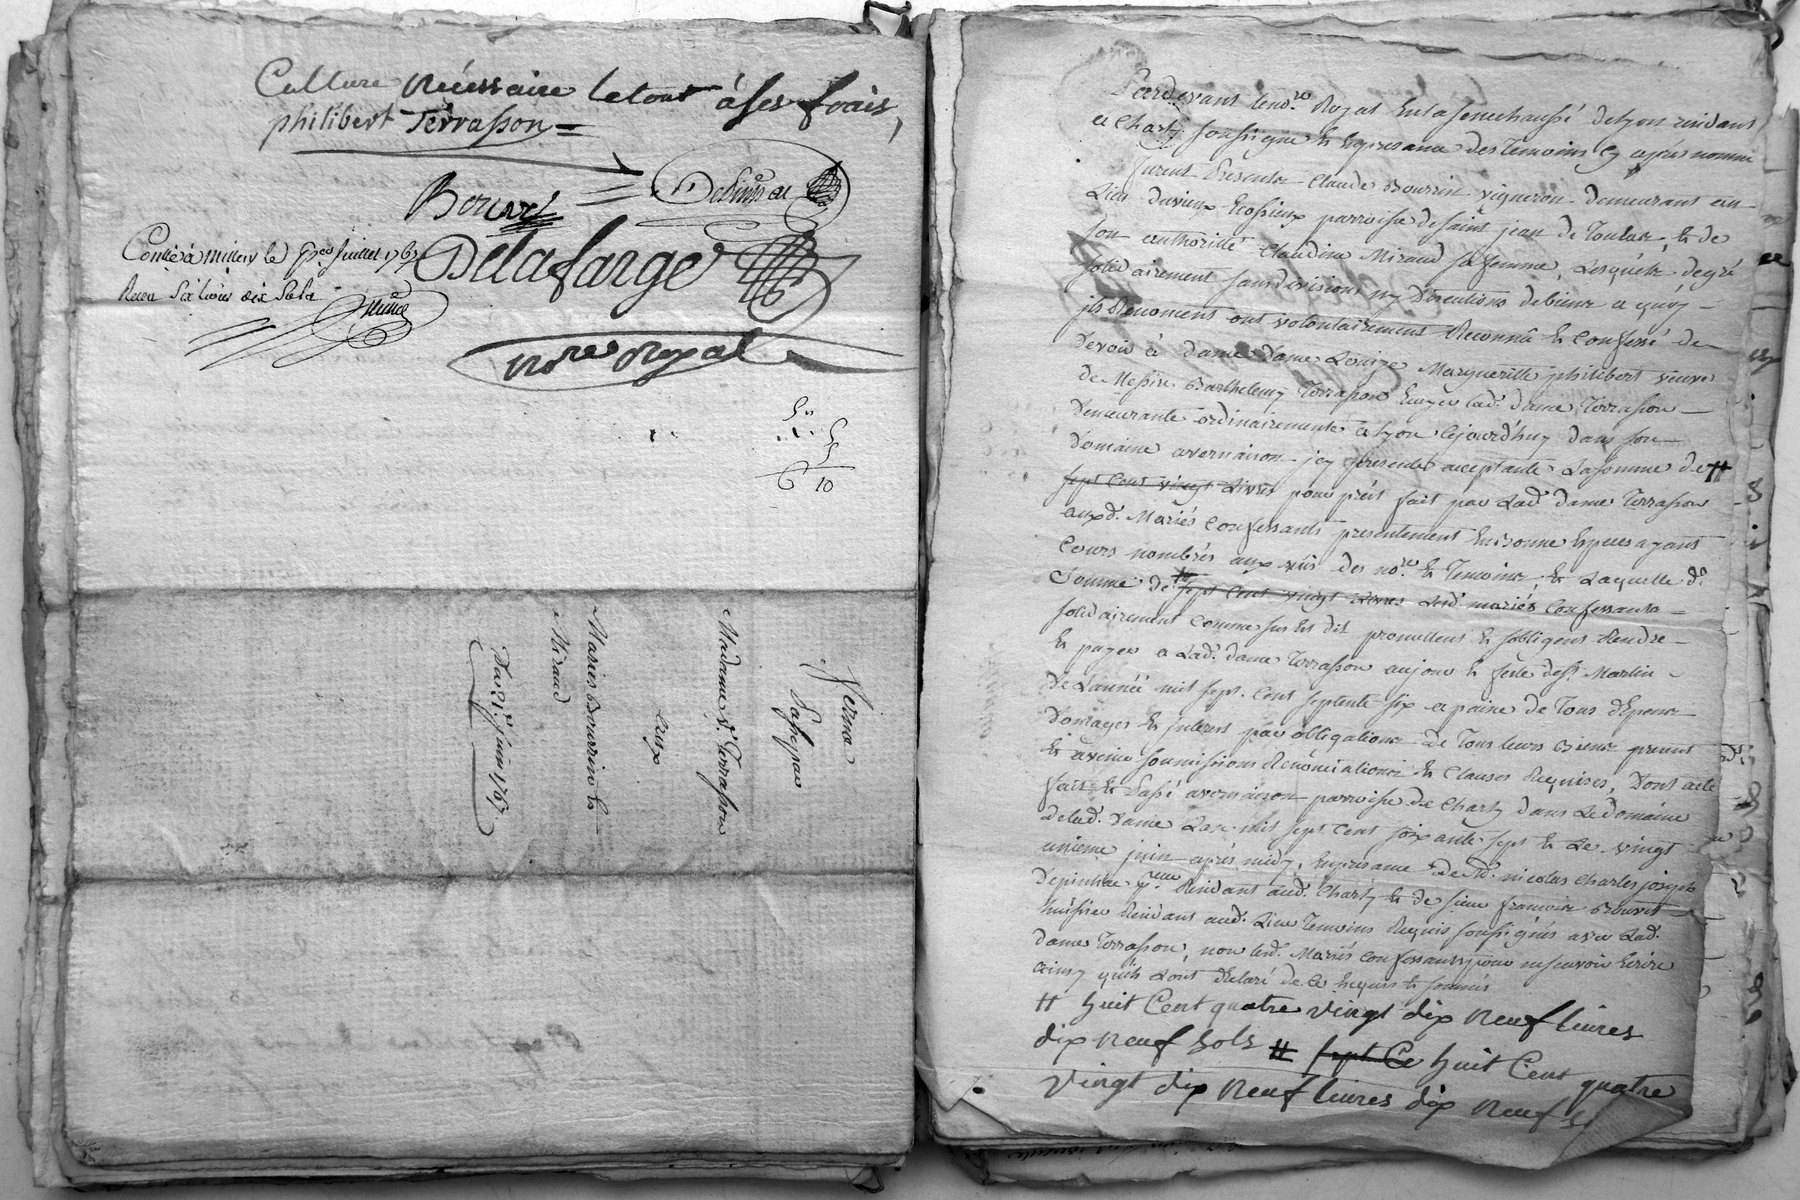 Culture Nécéssaire letout à ses frais,
philibert Terrasson =
Bouvet Depinse
Delafarge
Conllé à millery le juillet 1767
Recu Six livres dix Sols
no.re Royal
6 10
Vernea
Madame v.e Terrasson
Aux
Mariés Bourrin &
Miraud
Du 21.e juin 1767
Pardevant leno.re Royal Enlasenechaussé delyon residant
a Charly soussigné & Enpresance des Temoins cy après nommé
furent Présents Claude Bourrin vigneron demeurant au
Lieu duvieux parroisse desaint jean de Toulas & de
son authorité Claudine Miraud sa femme, Lesquels degré
solidairement sansdivision ny Discutions debiens a quoy
jls Renoncent ont volontairement Reconnu & Confessé de
devoir à dame dame Loüize Margueritte philibert veuve
de Messire Barthelemy Terrasson Ecuyer lad. dame Terrasson
Demeurante ordinairement a lyon cejourd'huy dans son
Domaine avernaison jcy presente acceptante Lasomme de #
sept Cent vingt Livres pour prêt fait par Lad. dame Terrasson
auxd. Mariés Confessants presentement EnBonne Especes ayant
Cours nombrés aux vüs des no.re & Temoins, & Laquelle d.
Somme de # sept Cent vingt Livres Lesd. mariés Confessants
solidairement comme sus Est dit promettent & sobligent Rendre
& payer a Lad. dame Terrasson aujour & feste des.t Martin
De Lannée mil sept Cent septente six a paine de Tous dépens
Domages & jnterest par obligations de Tous leurs Biens present
& avenir soumissions Rénonciations & Clauses Requises, Dont acte
fait & Passé avernaison parroisse de Charly dans Ledomaine
delad. Dame Lan mil sept Cent soixante sept & Le vingt
unieme juin après midy, Enpresance de nicolas Charles joseph
Residant aud. Charly & de sieur francois Bouvet
huissier Residant aud. Lieu Temoins Requis soussignés avec Lad.
dame Terrasson, non lesd. Mariés Confessants pour nesçavoir Ecrire
ainsy quils Lont Déclaré de ce Enquis & sommés
# huit Cent quatre vingt dix Neuf livres
dix Neuf sols # sept Ce huit Cent quatre
vingt dix Neuf livres dix Neuf